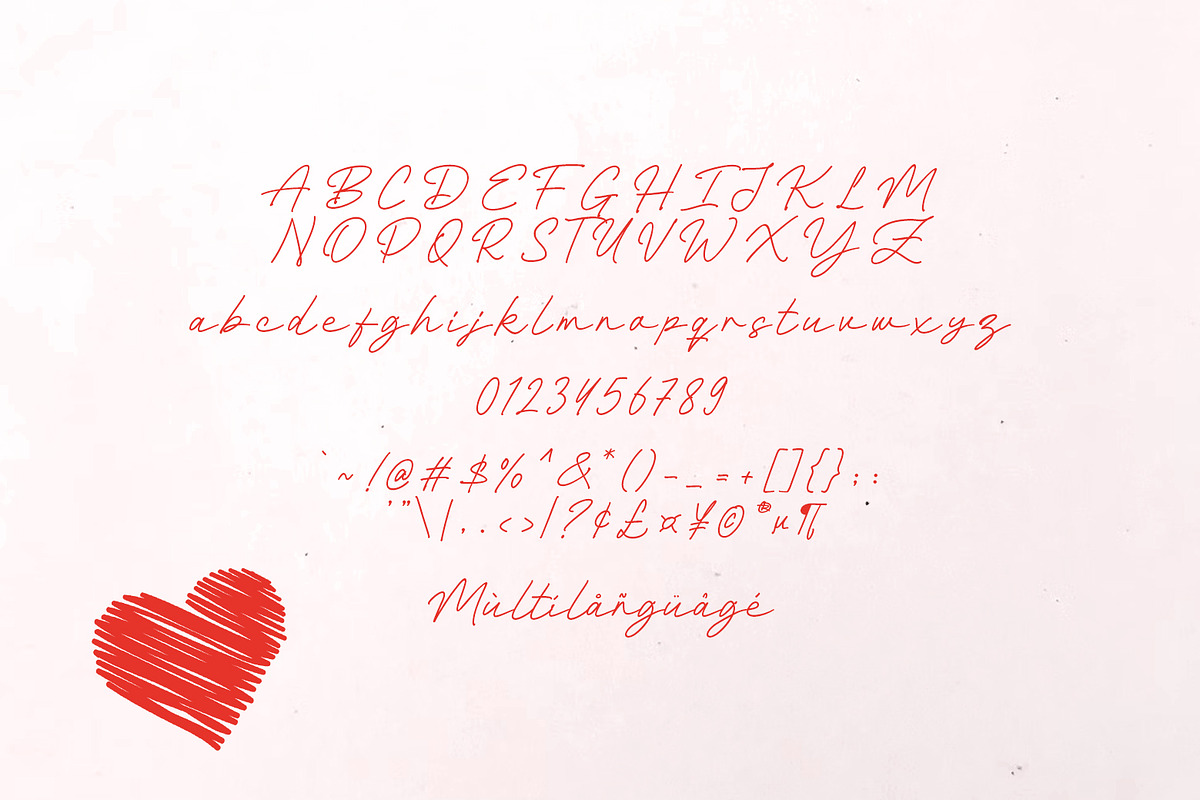 A B C D E F G H I J K L M
N O P Q R S T U V W X Y Z
a b c d e f g h i j k l m n o p q r s t u v w x y z
0 1 2 3 4 5 6 7 8 9
` ~ ! @ # $ % ^ & * ( ) - _ = + [ ] { } ; :
' " \ | , . < > / ? ¢ £ ¤ ¥ © ® µ ¶
Mùltílåñgüâgé